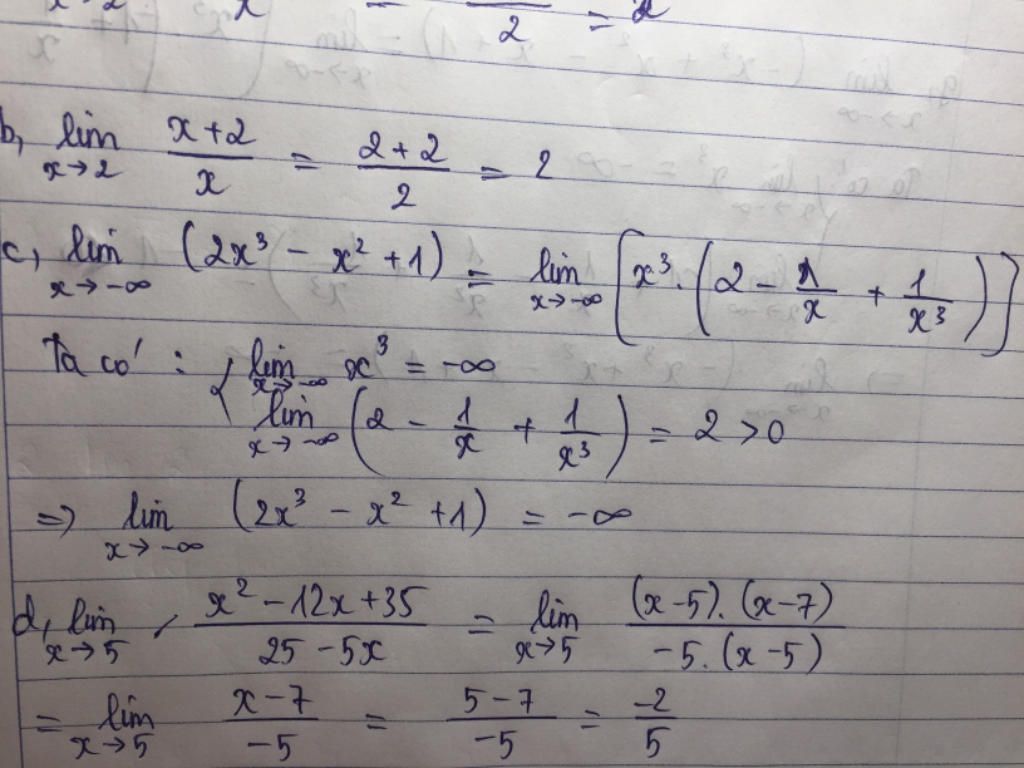 2 = 2
b, lim x→2 (x+2)/x = (2+2)/2 = 2
c, lim x→-∞ (2x³ - x² + 1) = lim x→-∞ [x³.(2 - 1/x + 1/x³)]
Ta có : { lim x→-∞ x³ = -∞
lim x→-∞ (2 - 1/x + 1/x³) = 2 > 0
=> lim x→-∞ (2x³ - x² + 1) = -∞
d, lim x→5 (x² - 12x + 35)/(25 - 5x) = lim x→5 ((x-5).(x-7))/(-5.(x-5))
= lim x→5 (x-7)/(-5) = (5-7)/(-5) = -2/5